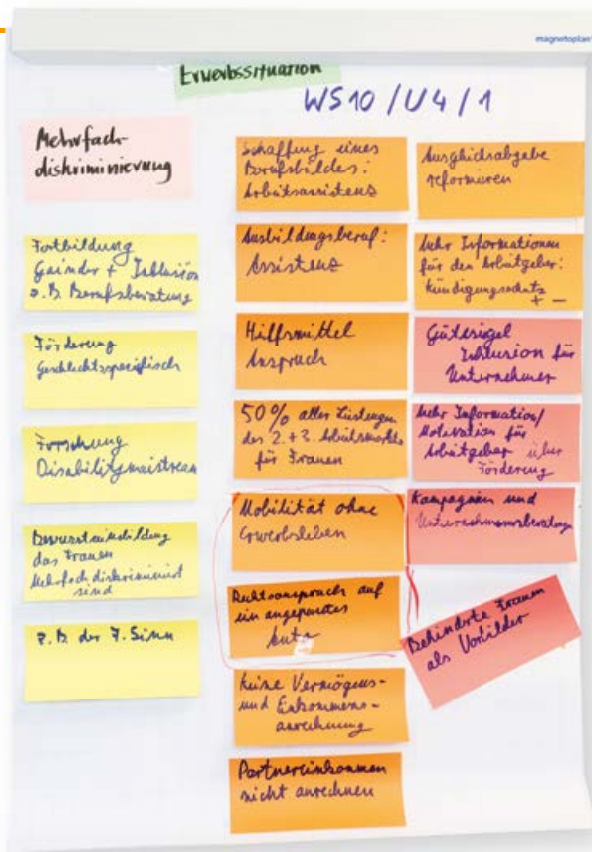 magnetoplan
Erwerbssituation
WS10/U4/1
Mehrfach-
diskriminierung
Fortbildung
Gainder + Inklusion
z.B. Berufsberatung
Förderung
Geschlechtsspezifisch
Forschung
Disabilitymaistream
Bewusstseinsbildung
das Frauen
Mehrfach diskriminiert
sind
z.B. der 7. Sinn
Schaffung eines
Berufsbildes:
Arbeitsassistenz
Ausbildungsberuf:
Assistenz
Hilfsmittel
Anspruch
50% aller Leistungen
des 2. + 3. Arbeitsmarktes
für Frauen
Mobilität ohne
Erwerbsleben
Rechtsanspruch auf
ein angepasstes
Auto
Keine Vermögens-
und Einkommens-
anrechnung
Partnereinkommen
nicht anrechnen
Ausgleichsabgabe
reformieren
Mehr Informationen
für den Arbeitgeber:
Kündigungsschutz
+ -
Gütesiegel
Inklusion für
Unternehmer
Mehr Information/
Motivation für
Arbeitgeber über
Förderung
Kampagnen und
Unternehmensberatung
Behinderte Frauen
als Vorbilder